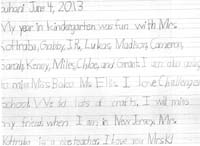 uhani June 4, 2013
My year in kindergarten was fun with Mrs.
Kottraba, Gabby, Lukas, Madison, Cameron,
Sarah, Kenny, Miles, Chloe, and Grant. I am also going
to miss Miss Bako Ms. Ellis. I love Challenger
school. We did lots of crafts. I will miss
my friends when I am in New Jersey. Mrs.
Kottraba is a nice teacher. I love you Mrs. K!